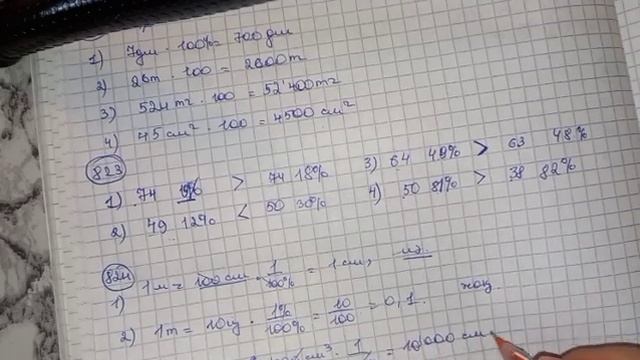 1) 7дм · 100% = 700 дм
2) 26т · 100 = 2600т
3) 524 мг · 100 = 52'400 мг
4) 45 см² · 100 = 4500 см²
823
1) 74 > 74 18%
2) 49 12% < 50 30%
3) 64 49% > 63 48%
4) 50 81% > 38 82%
824
1) 1м = 100 см · 1/100% = 1 см,
2) 1т = 10ц · 1%/100% = 10/100 = 0,1.
см³ · 1 = 10000 см